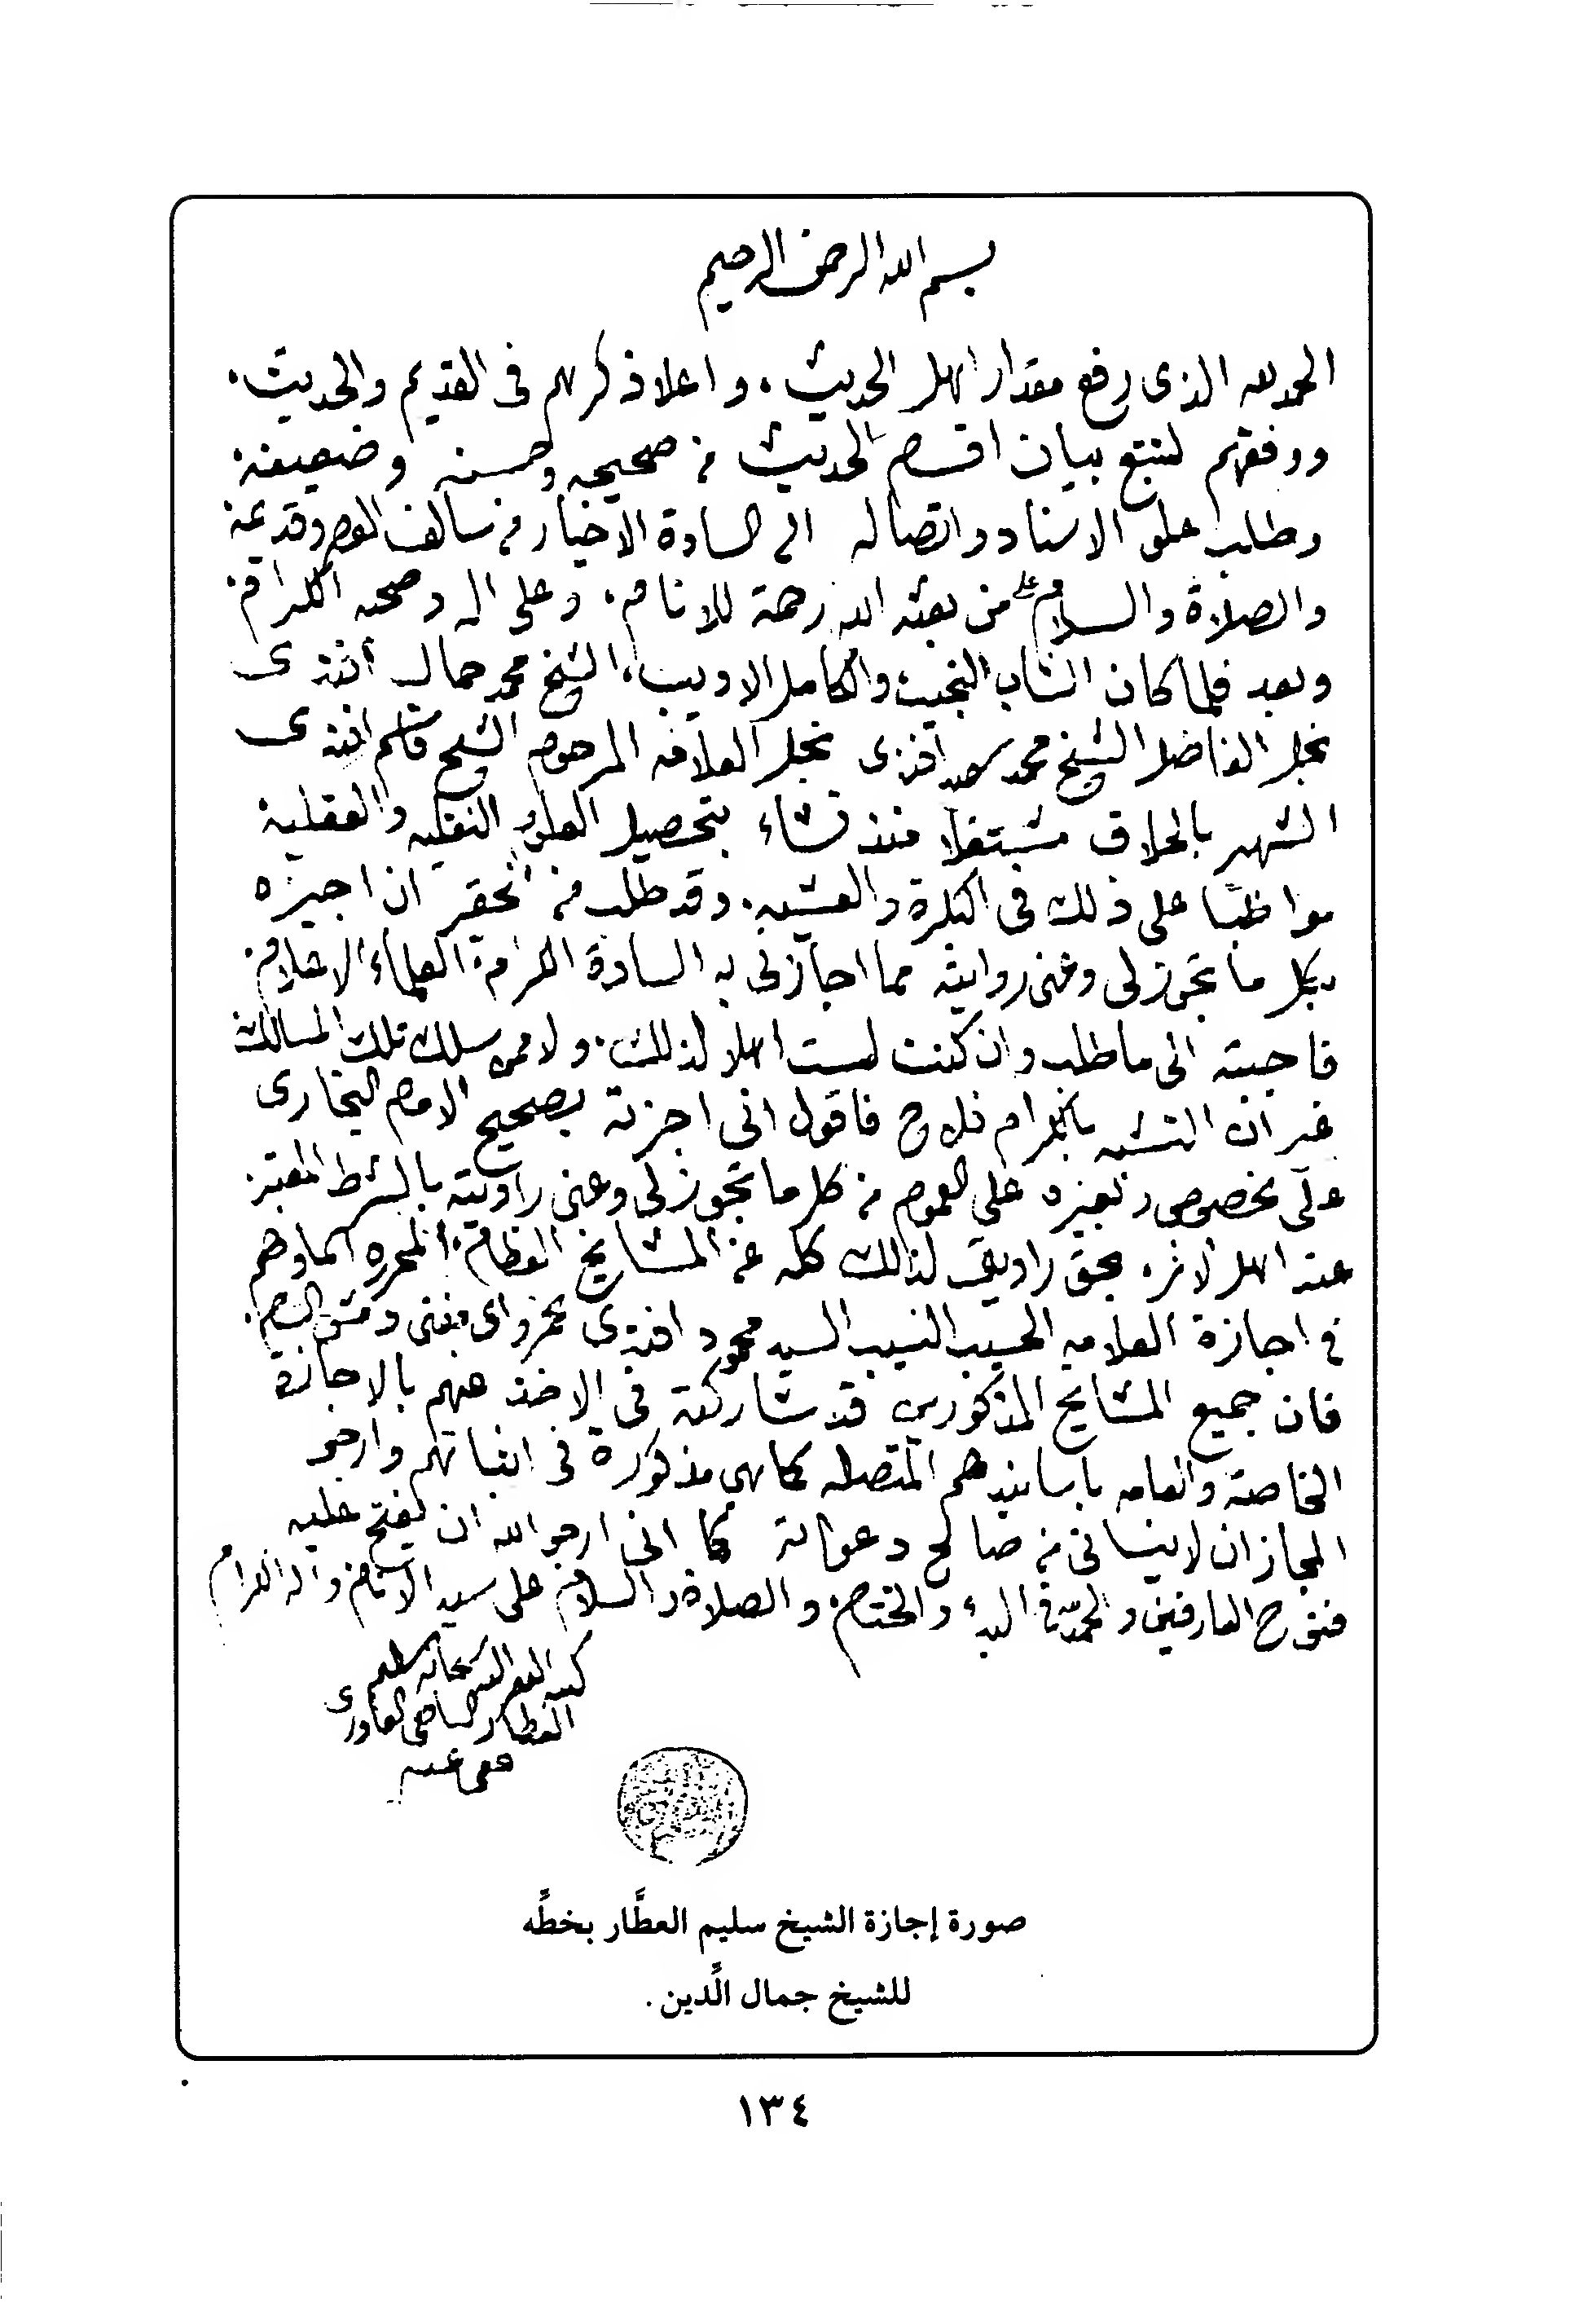 بسم الله الرحمن الرحيم
الحمد لله الذى رفع مقدار اهل الحديث ٠ واعلا ذكرهم فى القديم والحديث ٠
ووفقهم لتتبع بيان اقسام الحديث من صحيحه وحسنه وضعيفه
وطلب علو الاسناد واتصاله الى السادة الاخيار من سالف وقديمه
والصلاة والسلام على من بعثه الله رحمة للانام ٠ وعلى اله وصحبه الكرام
وبعد فلما كان الشاب النجيب والكامل الاديب الشيخ محمد جمال افندى
نجل الفاضل الشيخ محمد سعيد افندى نجل العلامه المرحوم الشيخ قاسم افندى
الشهير بالحلاق مشتغلا منذ نشاء بتحصيل العلوم النقليه والعقلية
مواظبًا على ذلك فى البكرة والعشيه ٠ وقد طلب من الحقير ان اجيزه
بكل ما تجوز لى وعنى روايته مما اجازنى به السادة الكرام العلماء الاعلام
فاجبته الى ما طلب وان كنت لست اهلا لذلك ٠ ولا ممن سلك تلك المسالك
غير ان التشبه بالكرام فلاح فاقول انى اجزته بصحيح الامام البخارى
على الخصوص وبغيره على العموم من كل ما تجوز لى وعنى راويته بالشرط المعتبر
عند اهل الاثر ٠ بحق راويتى لذلك كله عن المشايخ العظام المحرره اسماوهم
فى اجازة العلامه الحسيب النسيب السيد محمود افندى حمزاوى مفتى دمشق الشام ٠
فان جميع المشايخ المذكورين قد شاركته فى الاخذ عنهم بالاجازة
الخاصة والعامه باسانيدهم المتصله كما هى مذكورة فى اثباتهم وارجو
المجاز ان لا ينسانى من صالح دعواته كما انى ارجو الله ان يفتح عليه
فتوح العارفين والحمد لله فى البدء والختام والصلاة والسلام على سيد الانام واله الكرام
كتبه الفقير اليه سبحانه سليم
العطار الشافعى القادرى
عفى عنه
صورة إجازة الشيخ سليم العطَّار بخطِّه
للشيخ جمال الدِّين .
١٣٤